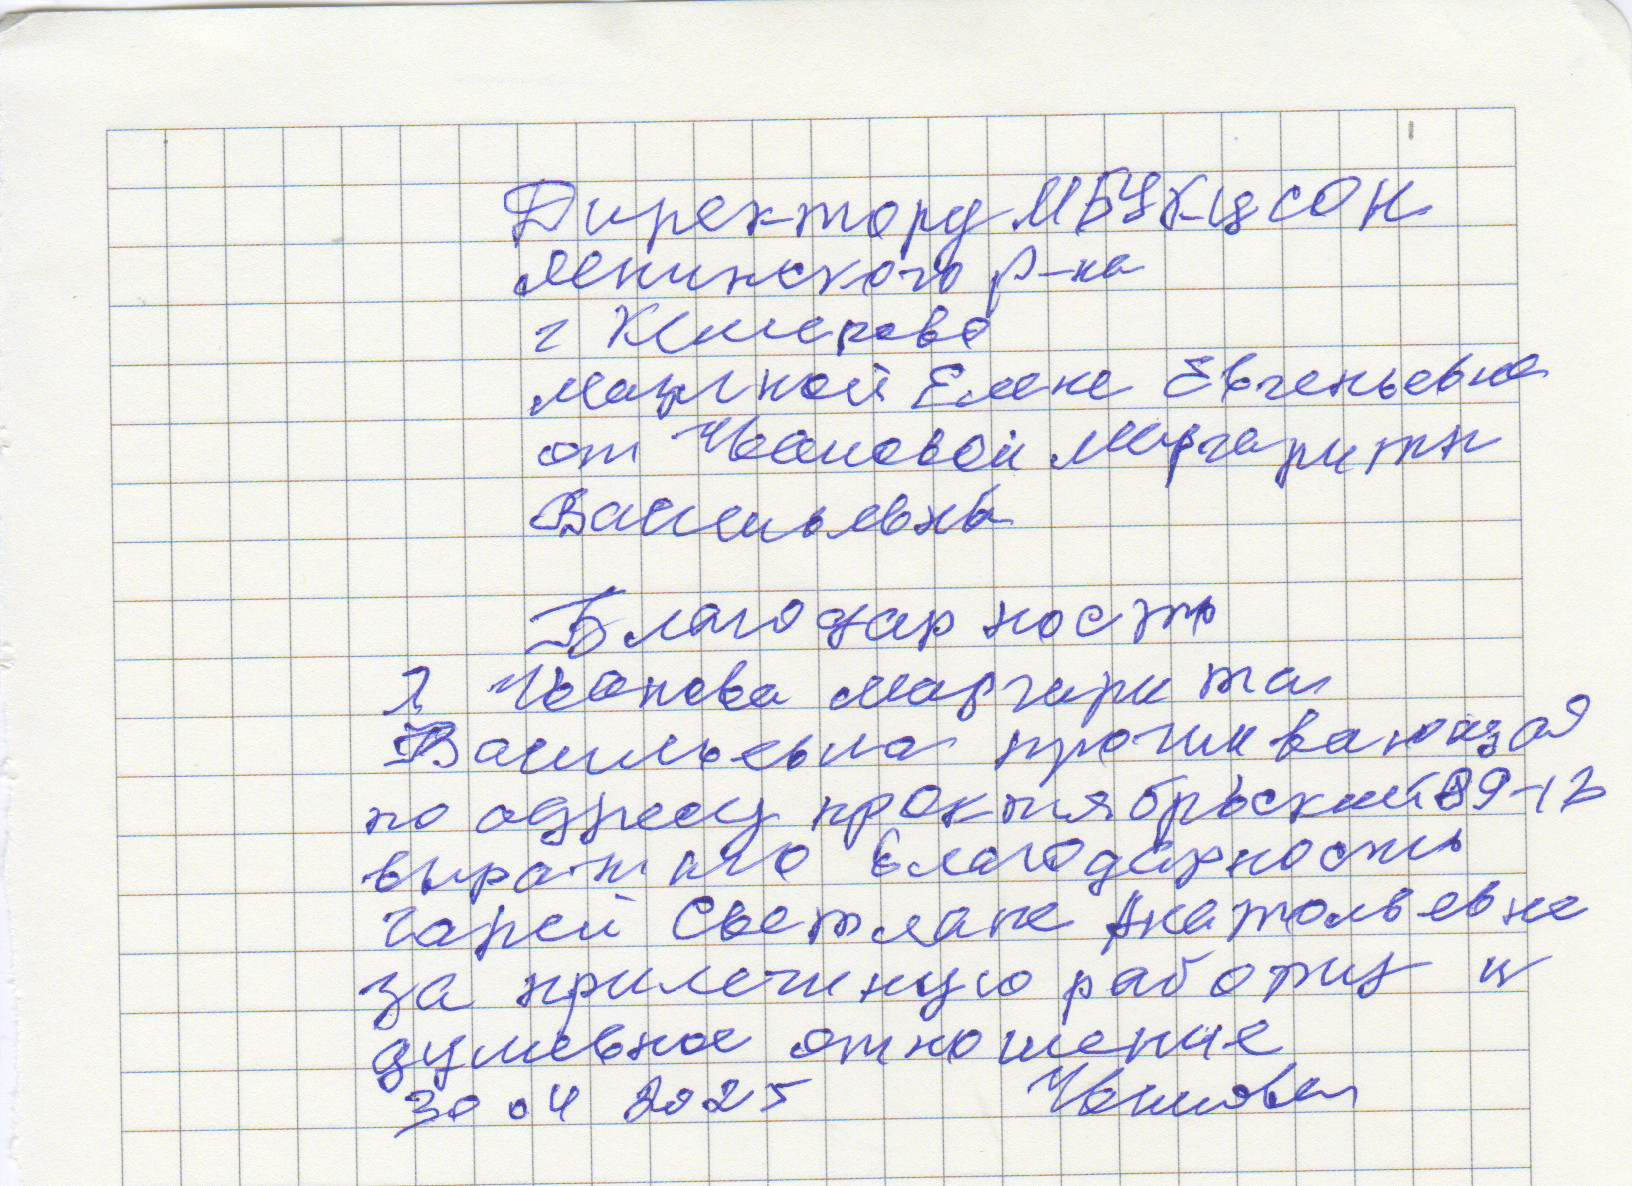 Директору МБУ КЦСОН
Ленинского р-на
г Кемерово
Елене Евгеньевне
от Ивановой Маргариты
Васильевны
Благодарность
Я Иванова Маргарита
Васильевна проживающая
по адресу пр Октябрьский 89-12
выражаю благодарность
Светлане Анатольевне
за приличную работу и
душевное отношение
30 04 2025 Иванова